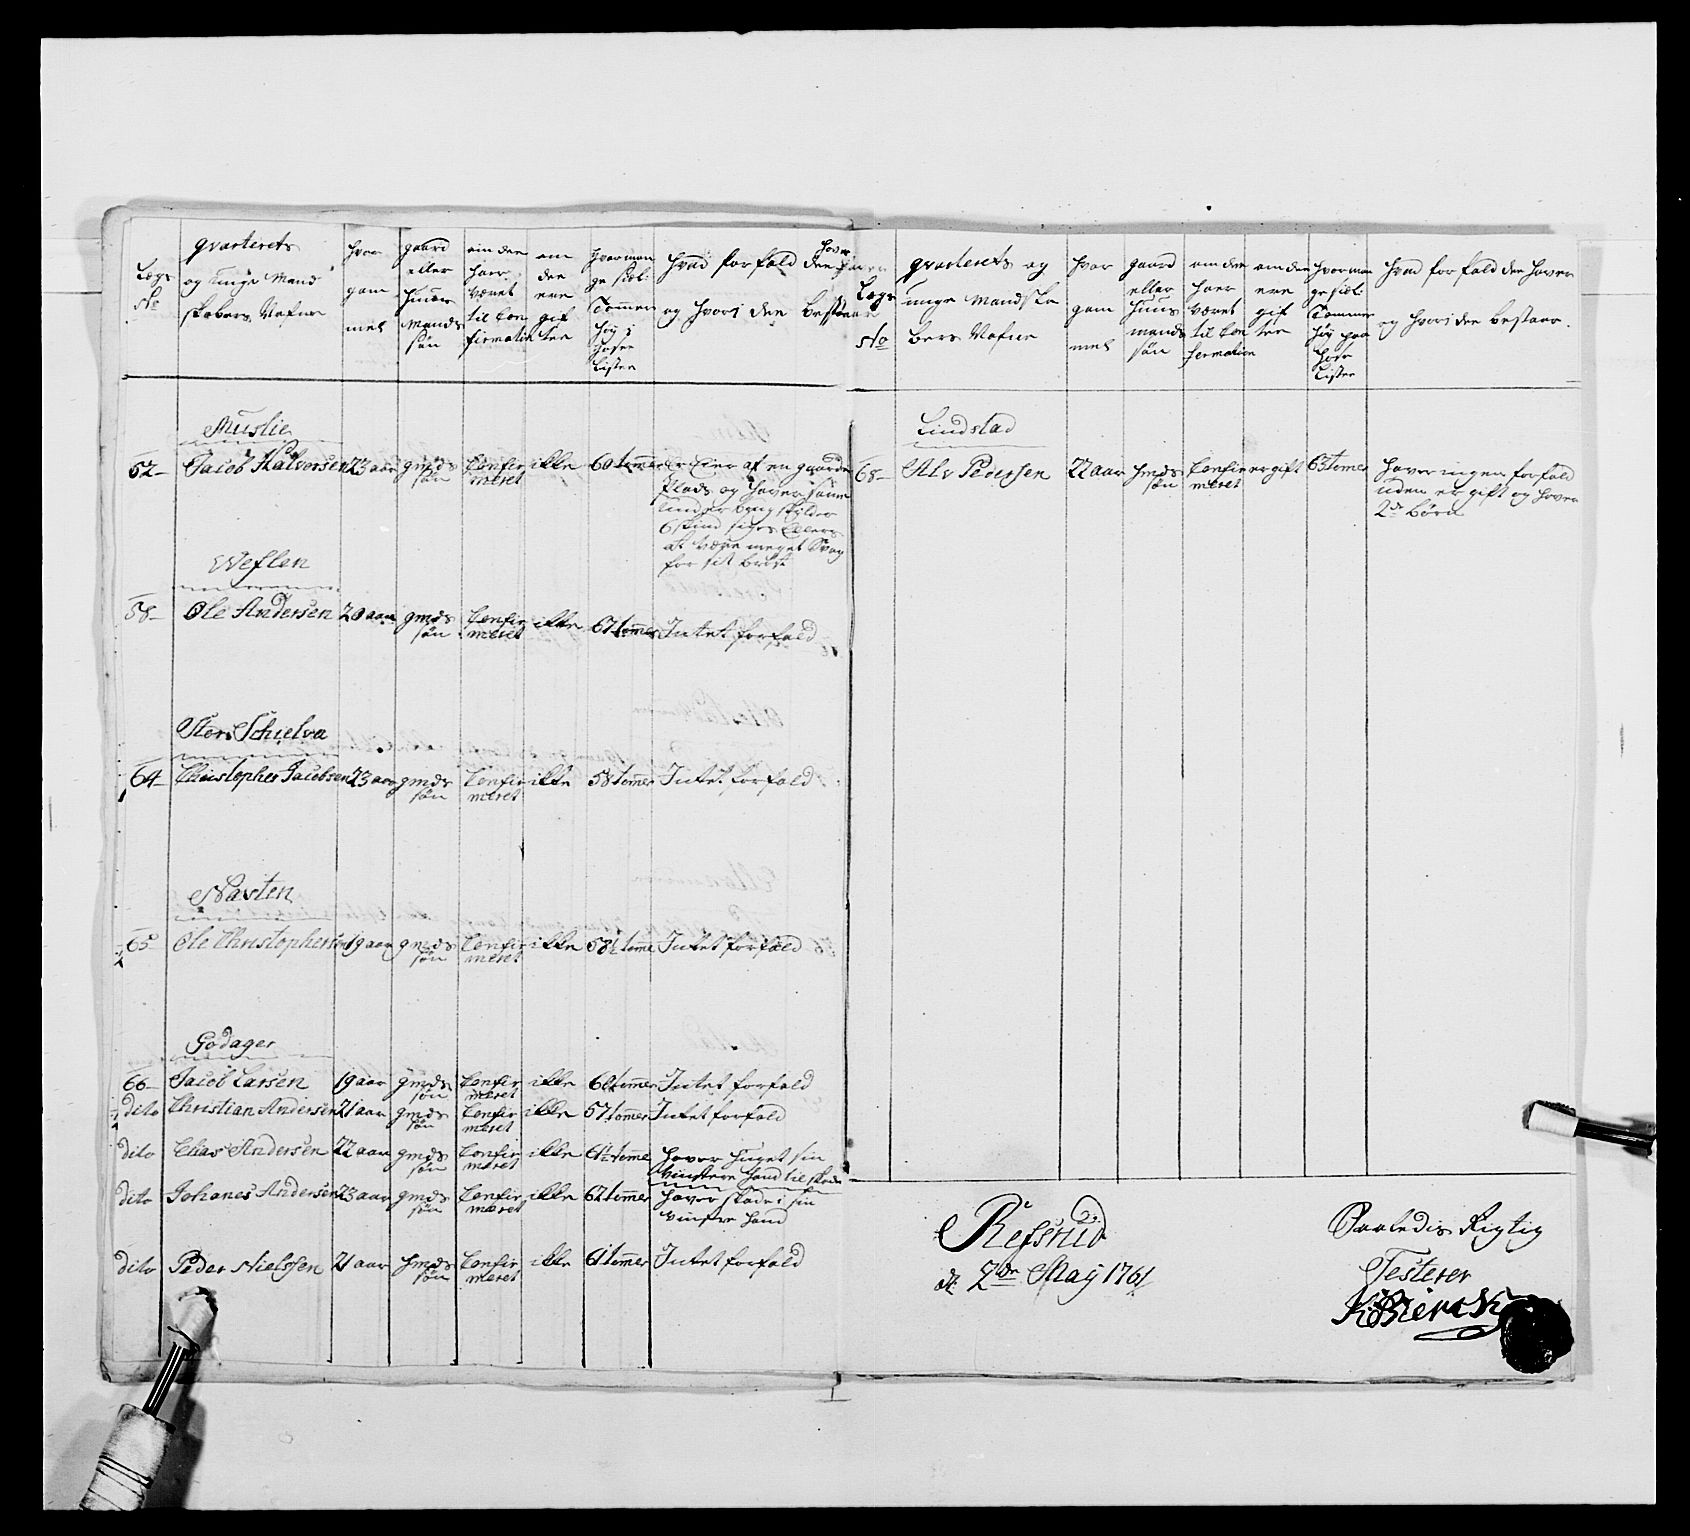 Lægs No
qvarterets og unge Mand skabers Nafne
hvor gam mel
gaard eller huus Mands søn
om den haer været til Con firmation
om den ere gif ten
hvor man ge siel: Tommer høy i hoser Lister
hvad forfald den haver og hvori den bestaaer
Muslie
62 Jacob Halversen 23 aar gmds søn Confir meret ikke 60 tommer er Eier af en gaarde
Plads og haver samme under bøyg skylder
6 skind siges Ellers
at være meget Svag
for sit bryst
Weflen
58 Ole Andersen 20 aar gmds søn Confir meret ikke 67 tommer Intet forfald
Store Schielva
64 Christopher Jacobsen 23 aar gmds søn Confir meret ikke 58 tommer Intet forfald
Navsten
65 Ole Christophersen 19 aar gmds søn Confir meret ikke 58½ tomme Intet forfald
Godager
66 Jacob Larsen 19 aar gmds søn Confir meret ikke tommer Intet forfald
dito Christian Andersen 21 aar gmds søn Confir meret ikke 57 tommer Intet forfald
dito Elias Andersen 22 aar gmds søn Confir meret ikke tomme haver huget sin
vinstere haand til skade
dito Johanes Andersen 23 aar gmds søn Confir meret ikke 62 tommer haver skade i sin
vinstre haand
dito Peder Nielssen 21 aar hmds søn Confir meret ikke 61 tommer Intet forfald
Lægs No
qvarterets og unge Mandska bers Nafne
hvor gam mel
gaard eller huus mands søn
om den haer været til Con fermation
om den ere gif ten
hvor man ge siel: Tommer høy paa hose Lister
hvad forfald den haver og hvori den bestaar.
Lindstad
68 Alv Pedersen 22 aar hmds søn Confir meret er gift 63 tomer haver ingen forfald
uden er gift og haver
2de børn
Refsrud
dt. 2de Maÿ 1761
Saaledis Rigtig
Testerer